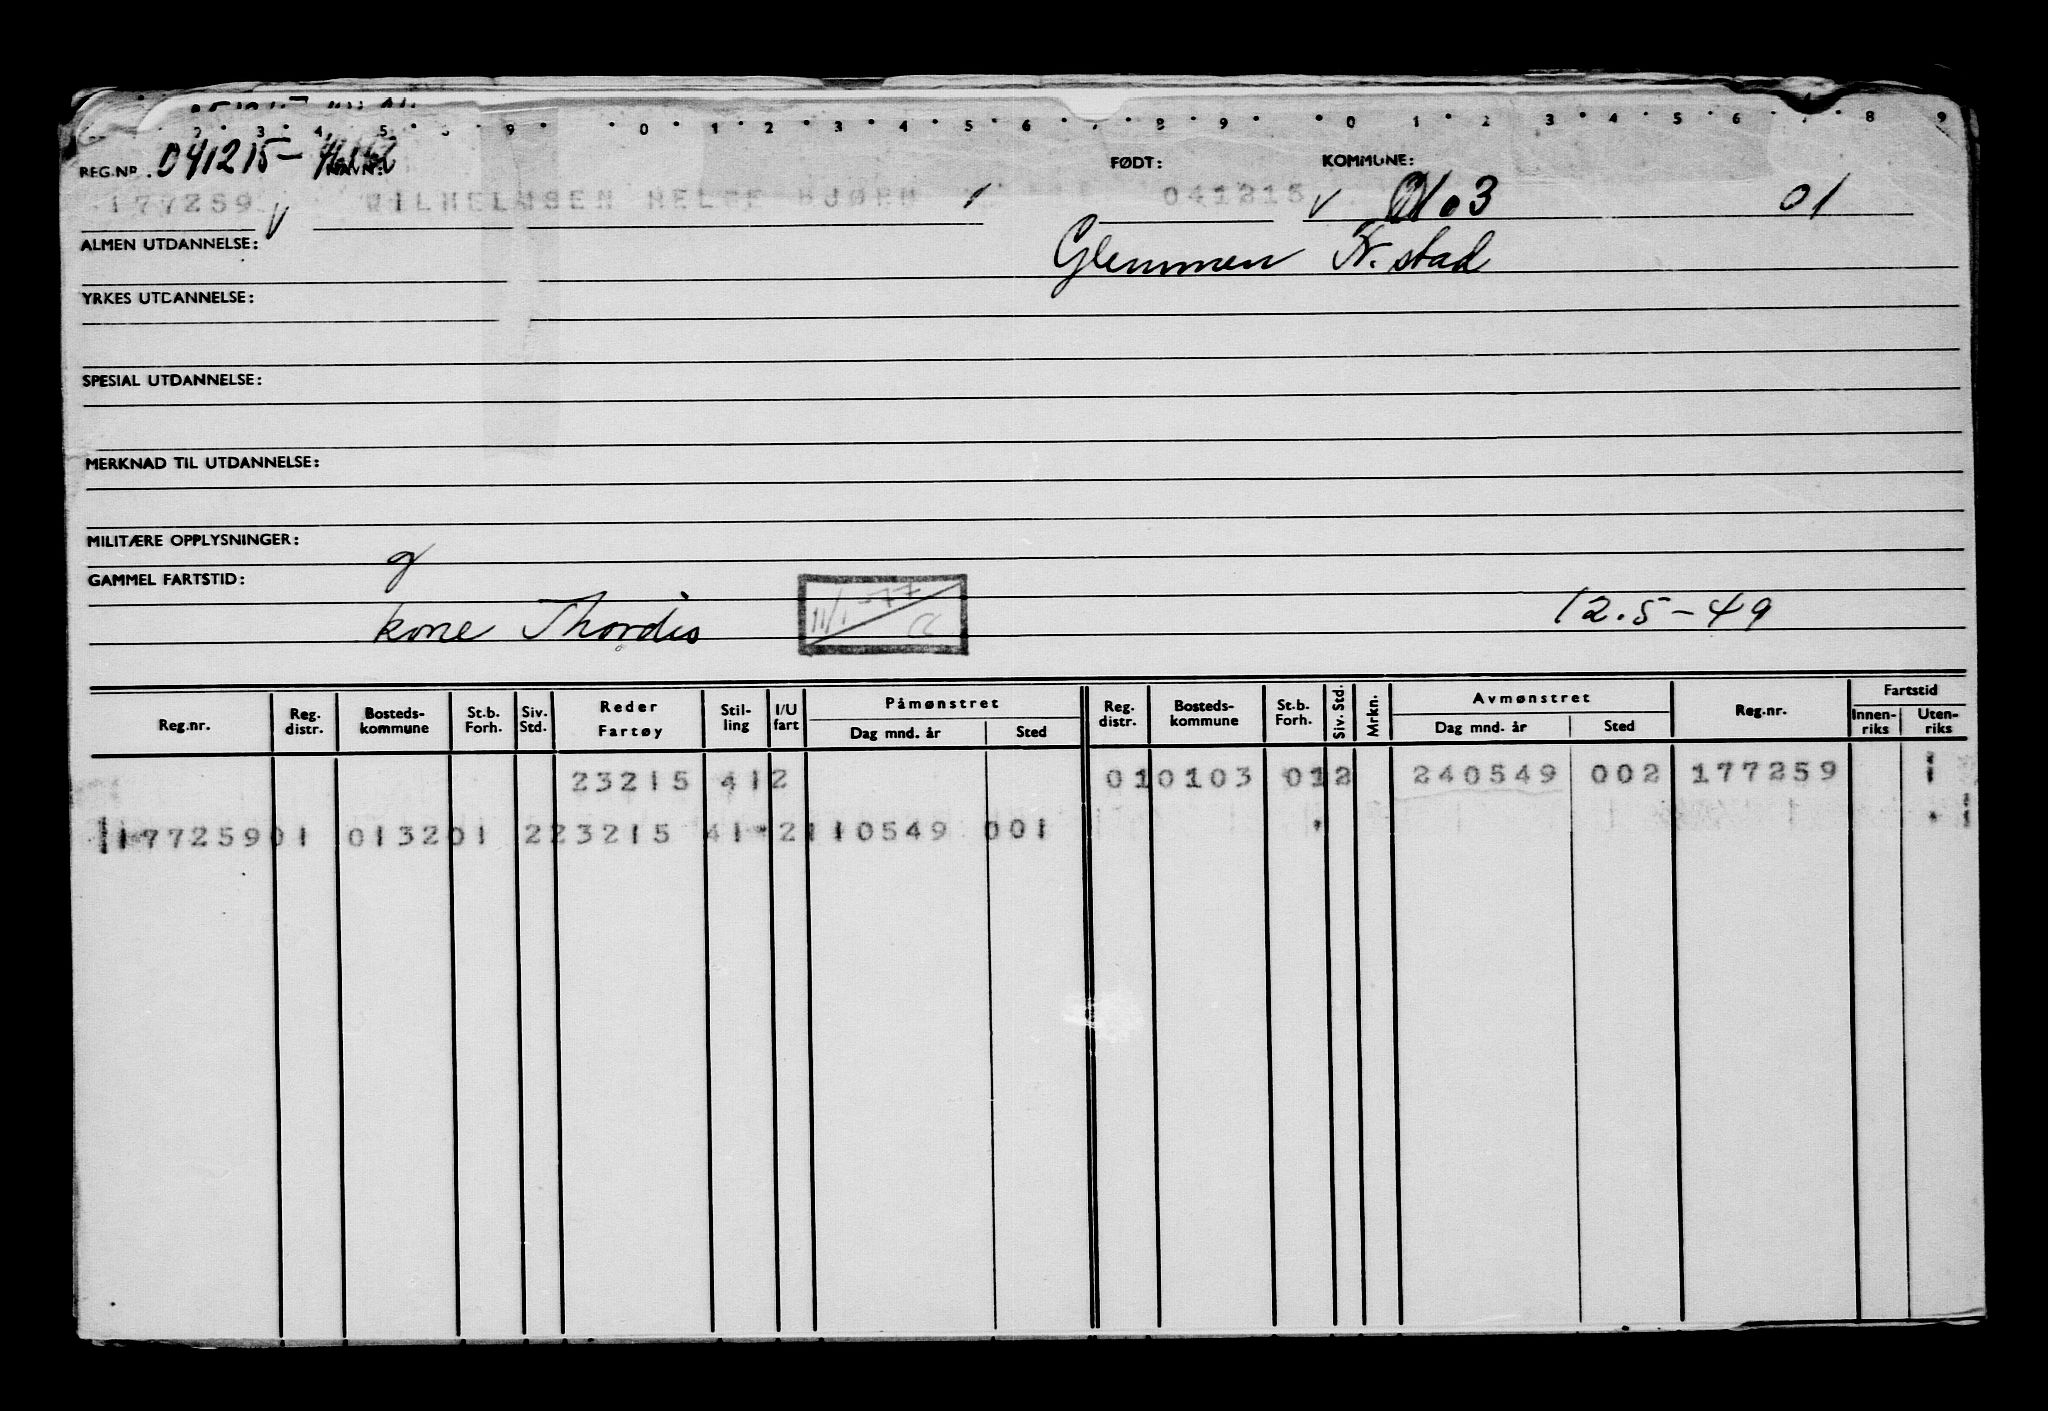 REG.NR. 041215- NAVN: FØDT: KOMMUNE:
177259 V WILHELMSEN HELGE BJØRN 041215 V 0103 01
ALMEN UTDANNELSE: Glemmen Fr.stad
YRKES UTDANNELSE:
SPESIAL UTDANNELSE:
MERKNAD TIL UTDANNELSE:
MILITÆRE OPPLYSNINGER:
g
GAMMEL FARTSTID:
kone Thordis 11/1-77 12.5-49
Reg.nr. Reg. distr. Bosteds-kommune St.b. Forh. Siv. Std. Reder Fartøy Stil-ling I/U fart Påmønstret Dag mnd. år Sted Reg. distr. Bosteds-kommune St.b. Forh. Siv. Std. Mrkn. Avmønstret Dag mnd. år Sted Reg.nr. Fartstid Innen-riks Uten-riks
23215 412 010103 012 240549 002 177259 1
177259 01 0132 01 2 23215 41 2 110549 001